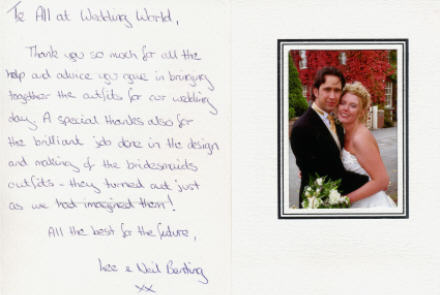 To All at Wedding World,
Thank you so much for all the
help and advice you gave in bringing
together the outfits for our wedding
day. A special thanks also for
the brilliant job done in the design
and making of the bridesmaids
outfits - they turned out just
as we had imagined them!
All the best for the future,
Lee & Neil
xx